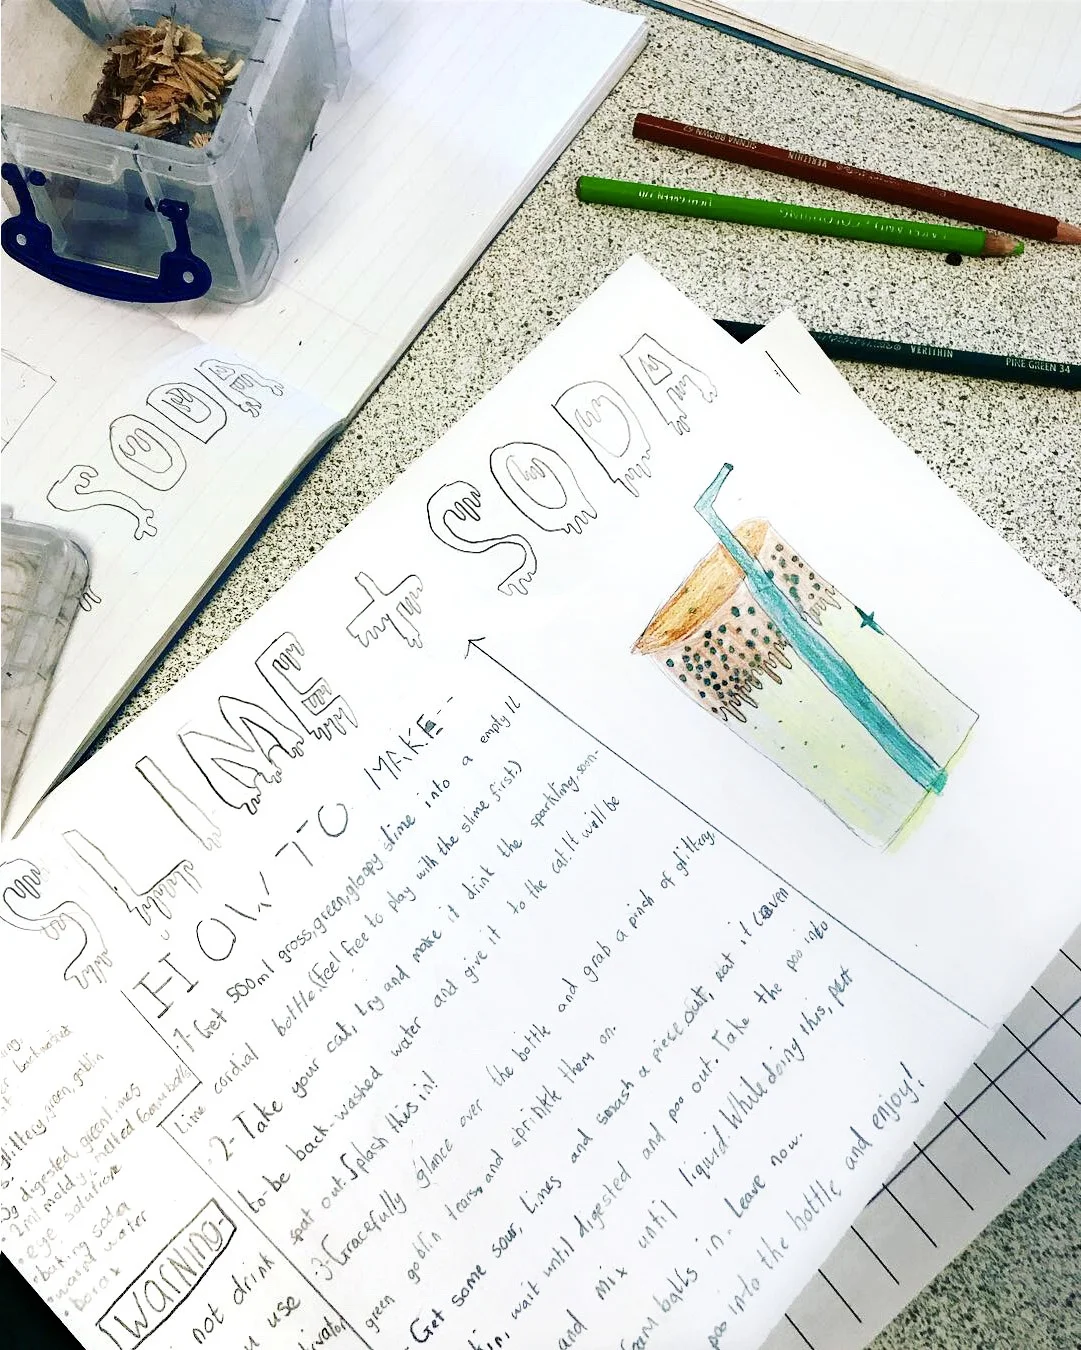 SIENNA BROWN 62
VERITHIN
LIGHT GREEN
VERITHIN PINE GREEN 34
SODA
SLIME t SODA
HOW TO MAKE--
1-Get 500ml gross,green,gloopy slime into a empty 1L
Lime cordial bottle.(feel free to play with the slime first.)
2- Take your cat, try and make it drink the sparkling, soon-
to-be back-washed water and give it to the cat. It will be
spat out. Splash this in!
3-Gracefully glance over the bottle and grab a pinch of glittery,
green goblin tears and sprinkle them on.
Get some sour, limes and smash a piece out, eat it (even
wait until digested and poo out. Take the poo into
and mix until liquid. While doing this, put
balls in- Leave now.
poo into the bottle and enjoy!
glittery, green, goblin
digested, green limes
2ml moldy, melted
eye solution
baking soda
warm water
borax
WARNING-
not drink
use